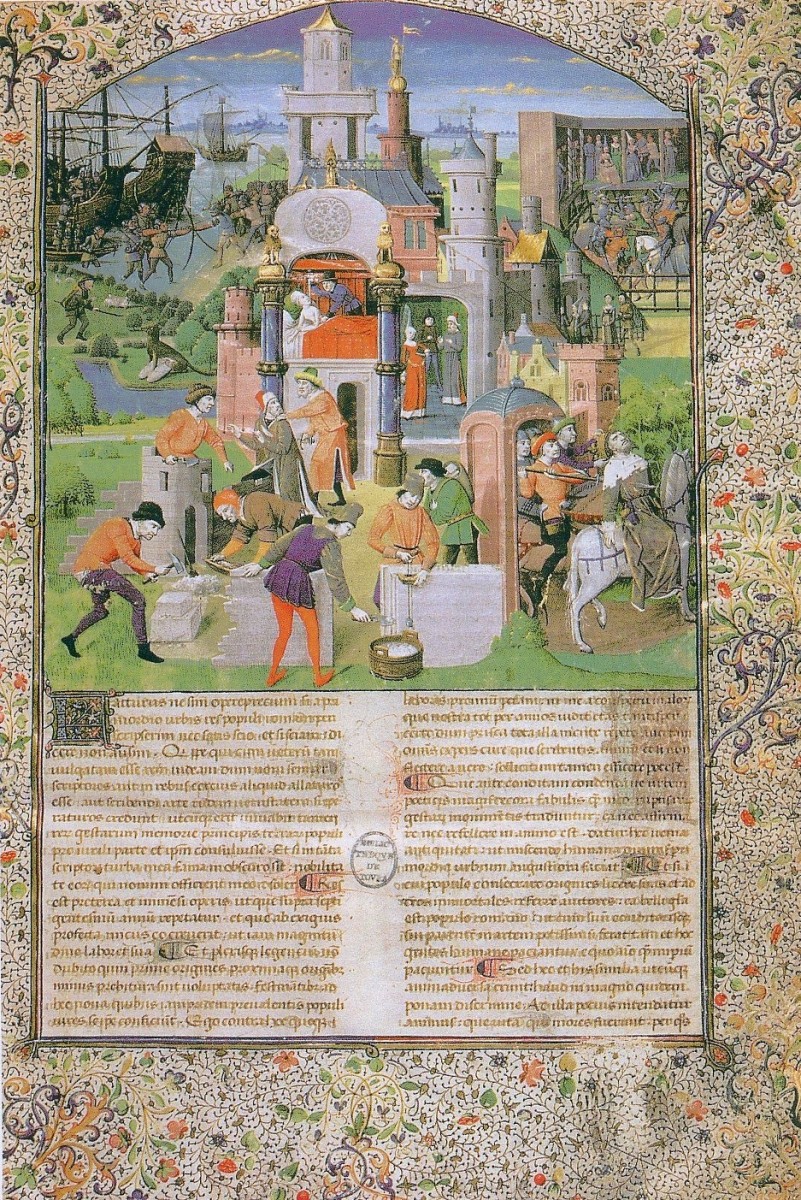 Facturus ne sim opere precium si a pri
mordio urbis res populi romani per
scripserim nec satis scio: et si sciam: di
cere non ausim. Quippe qui cum veterem tum
vulgatam esse rem videam dum novi semper
scriptores aut in rebus certius aliquid allaturos
esse aut scribendi arte rudem vetustatem supe
raturos credunt. utcumque erit iuvabit tamen
rerum gestarum memorie principis terrarum populi
pro virili parte et ipsum consuluisse. Et si in tanta
scriptorum turba mea fama in obscuro sit nobilita
te eorum qui nomini officient meo me consoler. Res
est preterea et immensi operis. ut que supra septin
gentesimum annum repetatur. et que ab exiguis
profecta iniciis eo creverit. ut iam magnitu
dine laboret sua. Et plerisque legencium haud
dubito quin prime origines proxima que originibus
minus prebitura sint voluptatis. festinantibus ad
hec nova quibus iampridem prevalentis populi
vires se ipse conficiunt. Ego contra hoc quoque
laboris premium petam. ut me a conspectu malorum
que nostra tot per annos vidit etas tantisper
certe dum prisca tota illa mente repeto avertam
omnis expers cure que scribentis animum et si non
flectere a vero: sollicitum tamen efficere posset
Que ante conditam condendamve urbem
poeticis magis decora fabulis quam incorruptis
gestarum monimentis traduntur. ea nec affirma
re nec refellere in animo est. datur hec venia
antiquitati ut miscendo humana divinis pri
mordia urbium augustiora faciat. Et si
cui populo consecrare origines licere suas et ad
deos immortales referre auctores: ea belli gloria
est populo romano ut cum suum conditorisque
sui parentem martem potissimum ferat tam et hec
gentes humane paciantur equo animo quam imperium
paciuntur. Sed hec et his similia utcumque
animadversa aut existimata erunt haud in magno quidem
ponam discrimine. Ad illa pecius intendat
animum: que vita qui mores fuerint. per quos
BIBLIOTHÈQUE
DE
TOURS